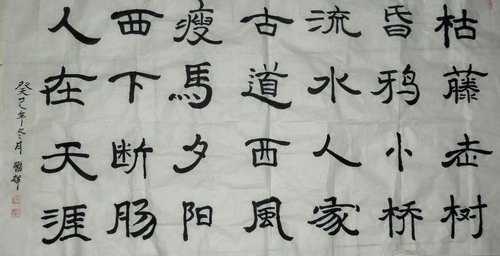 枯藤老树
昏鸦小桥
流水人家
古道西風
瘦馬夕阳
西下断肠
人在天涯
癸巳年冬月